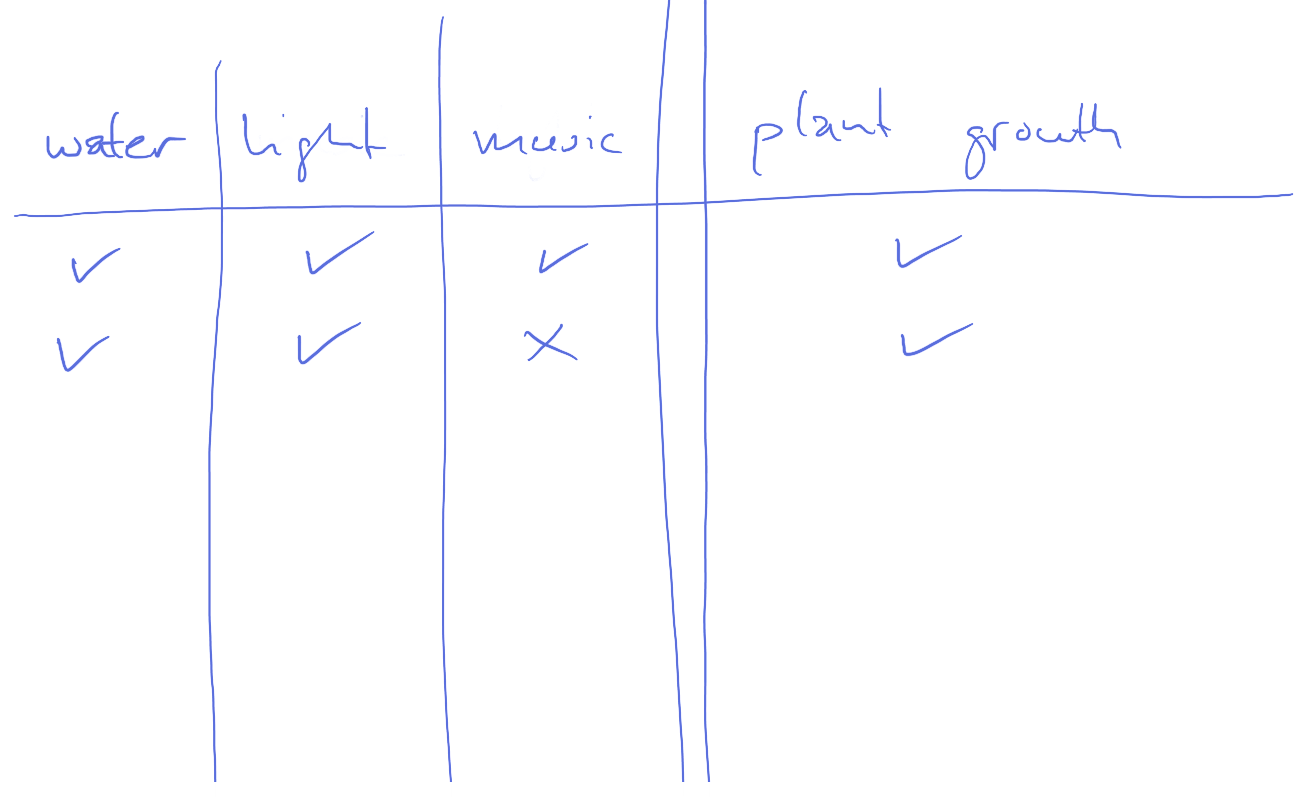 water light music plant growth
✓ ✓ ✓ ✓
✓ ✓ ✗ ✓